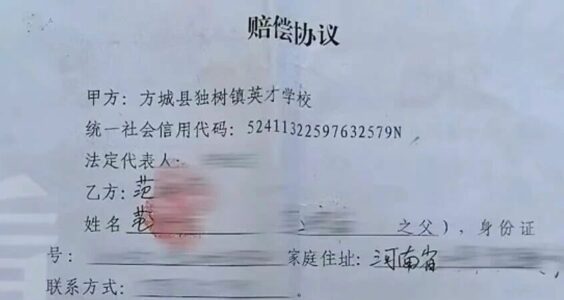 赔偿协议
甲方：方城县独树镇英才学校
统一社会信用代码：52411322597632579N
法定代表人：
乙方：范
姓名 范 之父），身份证
号： 家庭住址：河南省
联系方式：